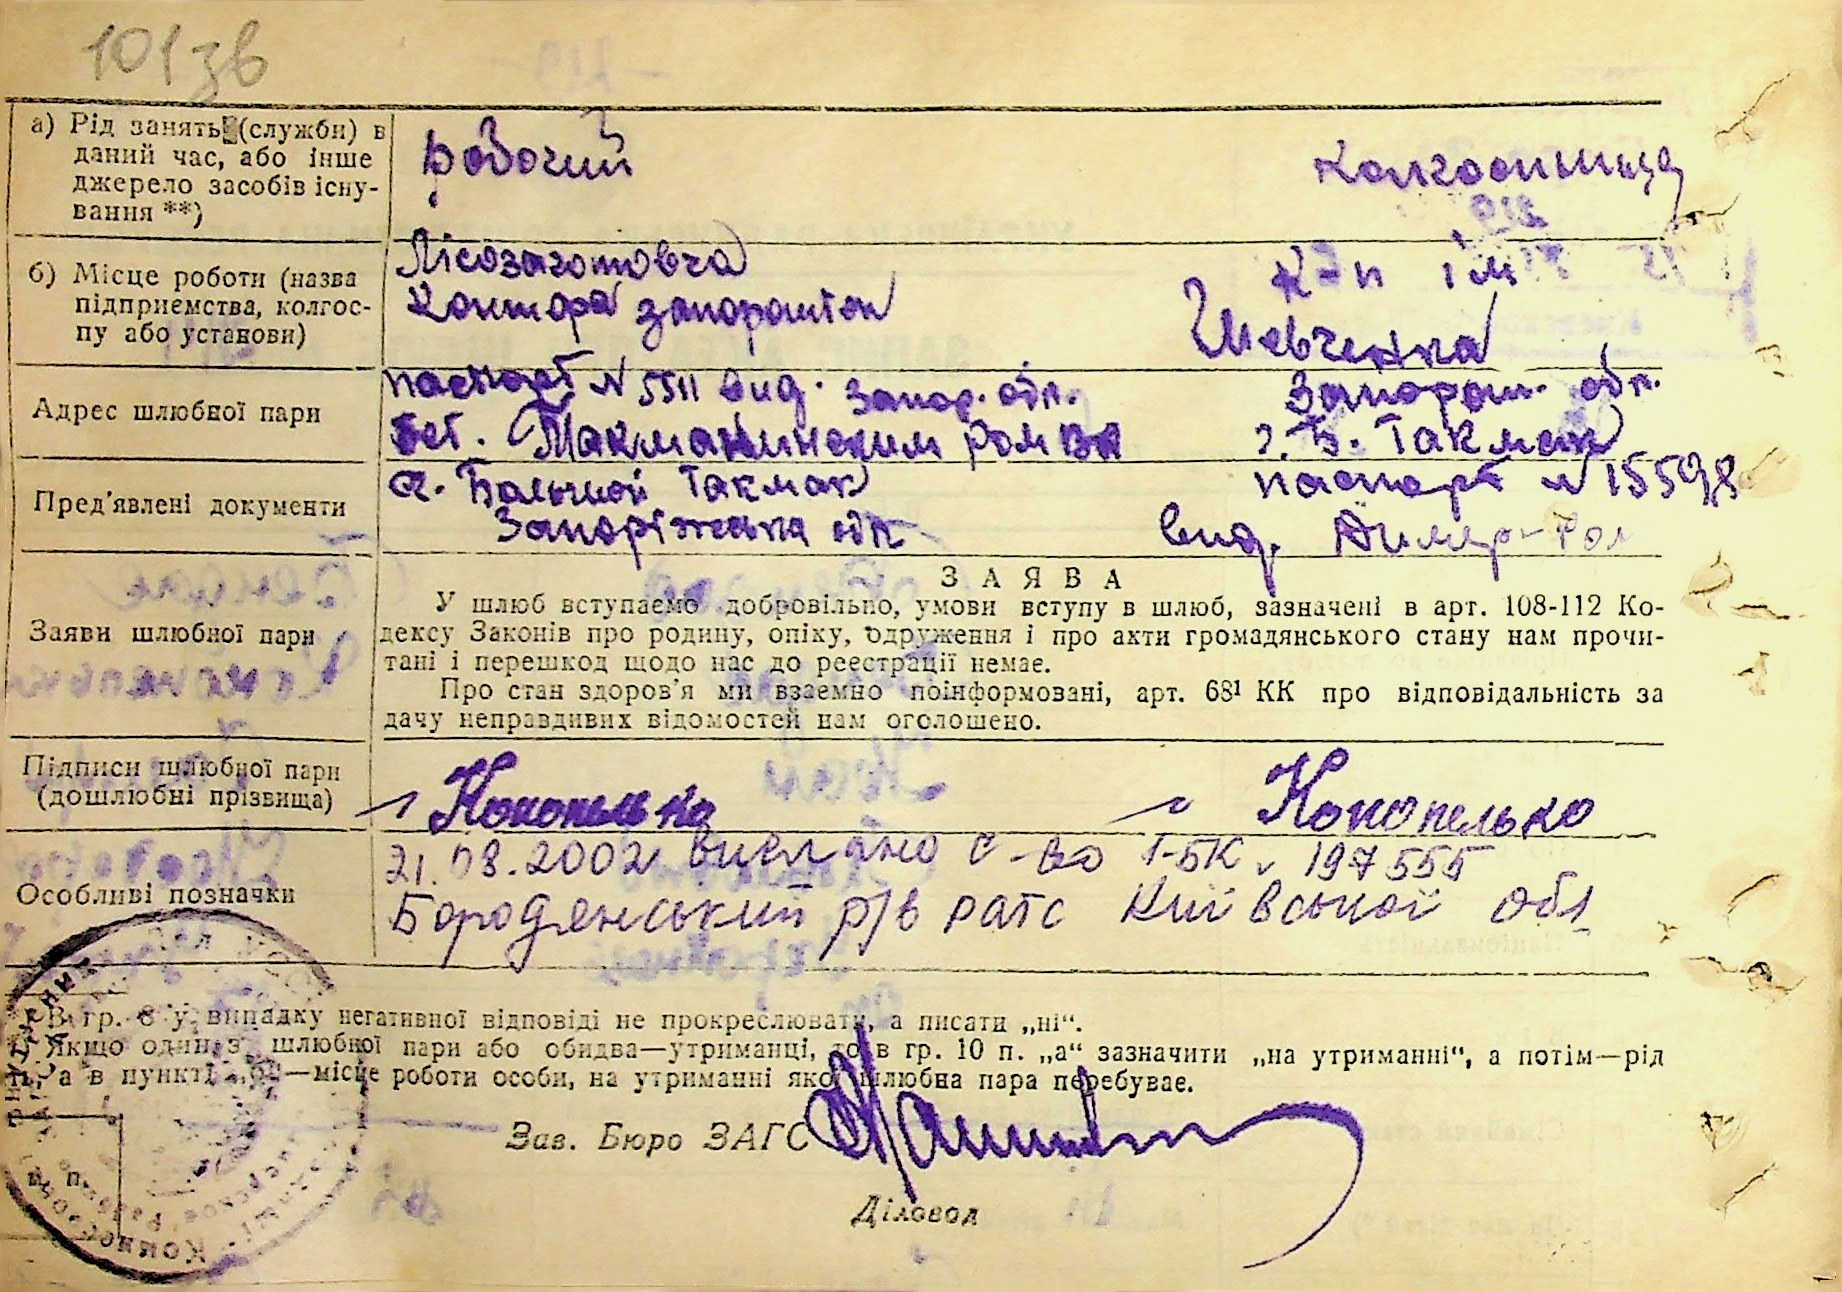 101зв
а) Рід занять (служби) в
даний час, або інше
джерело засобів існу-
вання **)
робочий
колгоспниця
б) Місце роботи (назва
підприємства, колгос-
пу або установи)
Лісозаготовча
Контора
к-п ім
Шевченка
Адрес шлюбної пари
паспорт N 5511 вид. Запор. обл.
ром
Запорож. обл.
г. Б. Такмак
Пред'явлені документи
с. Большой Такмак
Запоріжська обл
паспорт N 15598
вид. Димер-
Заяви шлюбної пари
ЗАЯВА
У шлюб вступаємо добровільно, умови вступу в шлюб, зазначені в арт. 108-112 Ко-
дексу Законів про родину, опіку, одруження і про акти громадянського стану нам прочи-
тані і перешкод щодо нас до реєстрації немає.
Про стан здоров'я ми взаємно поінформовані, арт. 68¹ КК про відповідальність за
дачу неправдивих відомостей нам оголошено.
Підписи шлюбної пари
(дошлюбні прізвища)
Конопелько
Конопелько
Особливі позначки
21.08.2002 вислано с-во І-БК 197555
Бородянський р/в рагс Київської обл
В гр. 8 у випадку негативної відповіді не прокреслювати, а писати „ні“.
Якщо один з шлюбної пари або обидва—утриманці, то в гр. 10 п. „а“ зазначити „на утриманні“, а потім—рід
а в пункті „б“—місце роботи особи, на утриманні якої шлюбна пара перебуває.
Зав. Бюро ЗАГС
Діловод